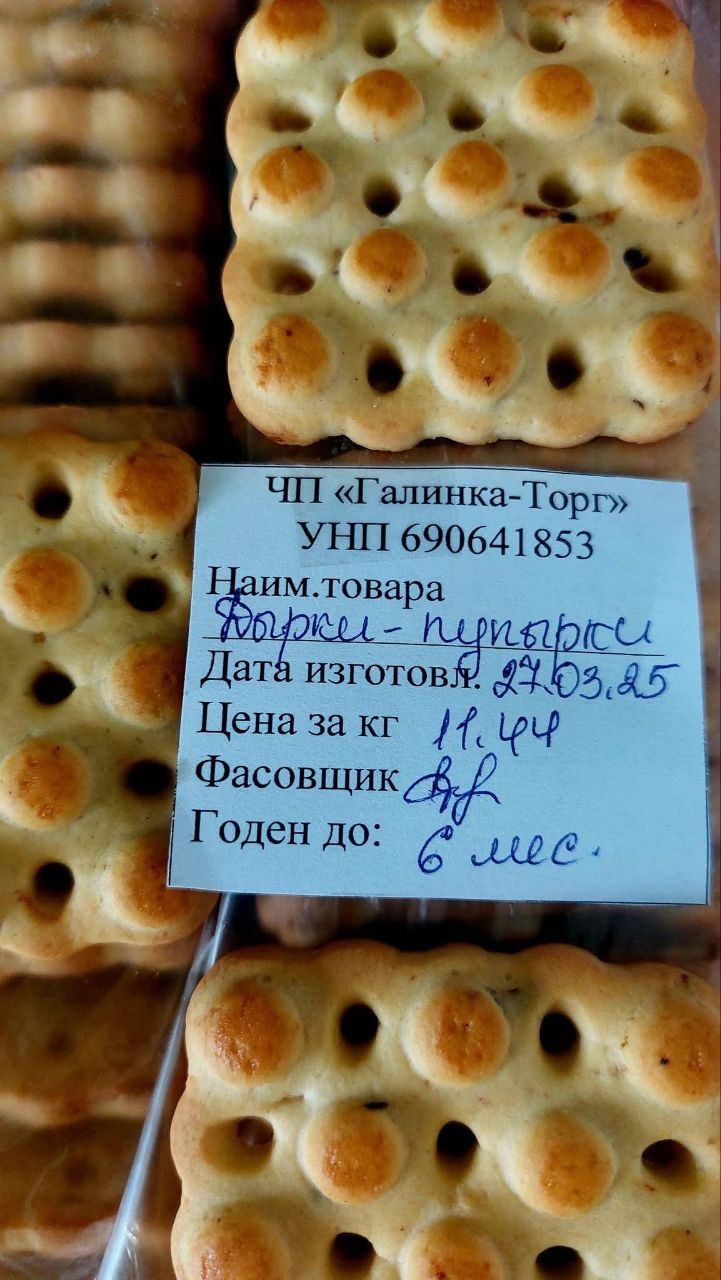 ЧП «Галинка-Торг»
УНП 690641853
Наим.товара
Дырки-пупырки
Дата изготовл. 27.03.25
Цена за кг 11.44
Фасовщик
Годен до: 6 мес.